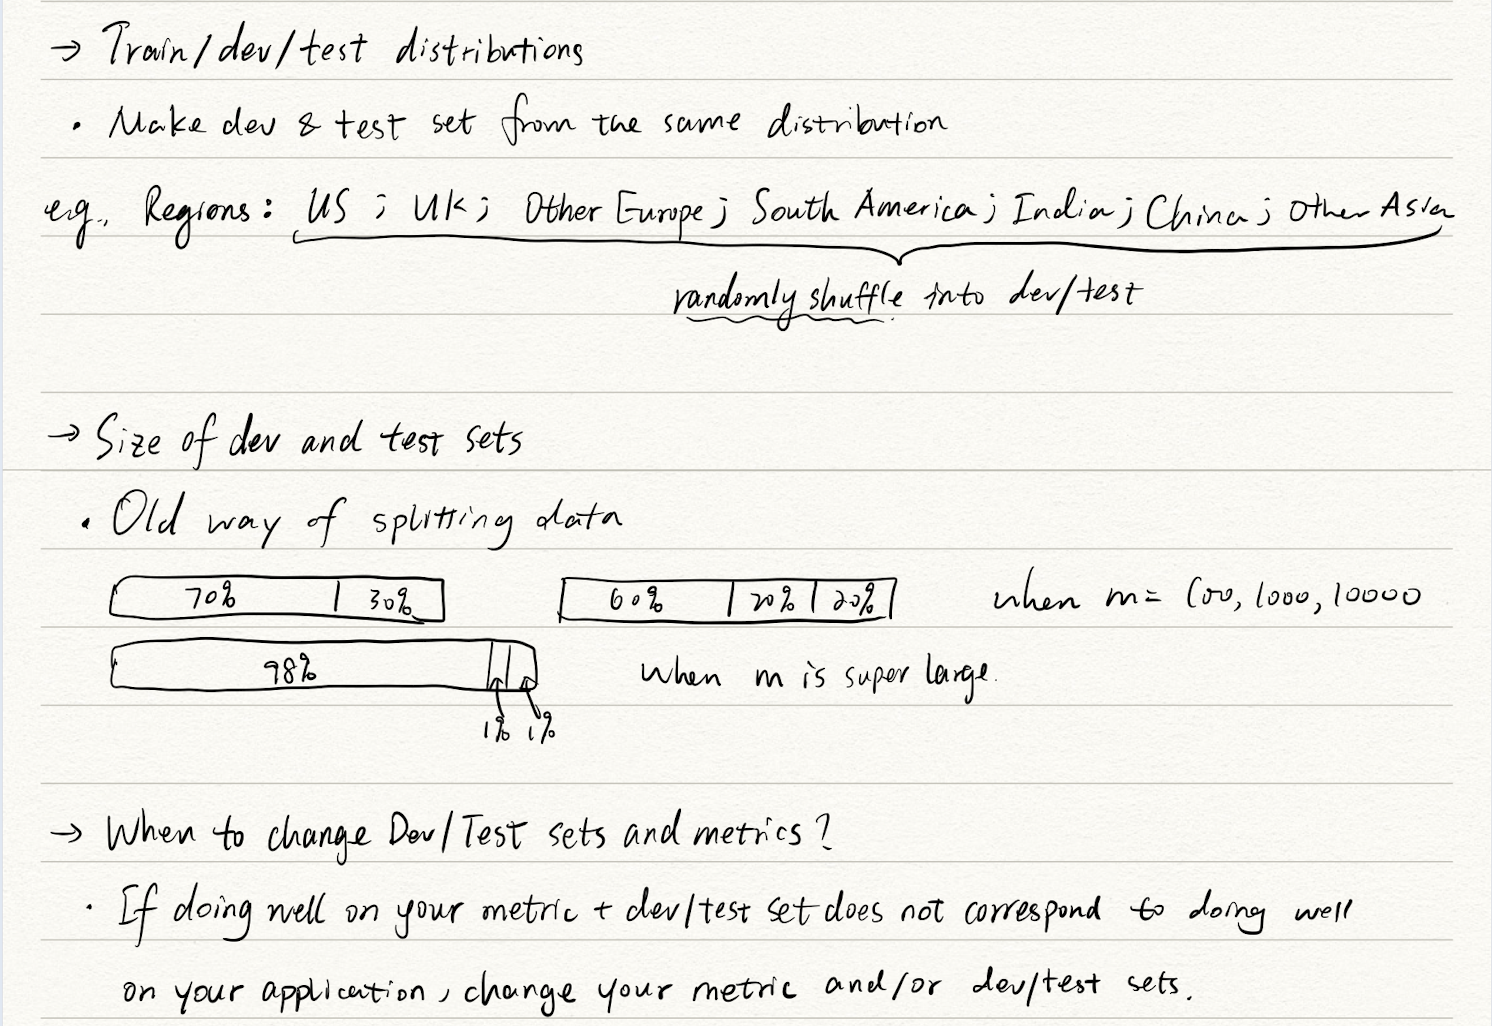 → Train/dev/test distributions
• Make dev & test set from the same distribution
e.g., Regions: US ; UK; Other Europe; South America; India; China; Other Asia
randomly shuffle into dev/test
→ Size of dev and test sets
• Old way of splitting data
70% 30% 60% 20% 20% when m = 100, 1000, 10000
98% when m is super large.
1% 1%
→ When to change Dev/Test sets and metrics?
• If doing well on your metric + dev/test set does not correspond to doing well
on your application, change your metric and/or dev/test sets.